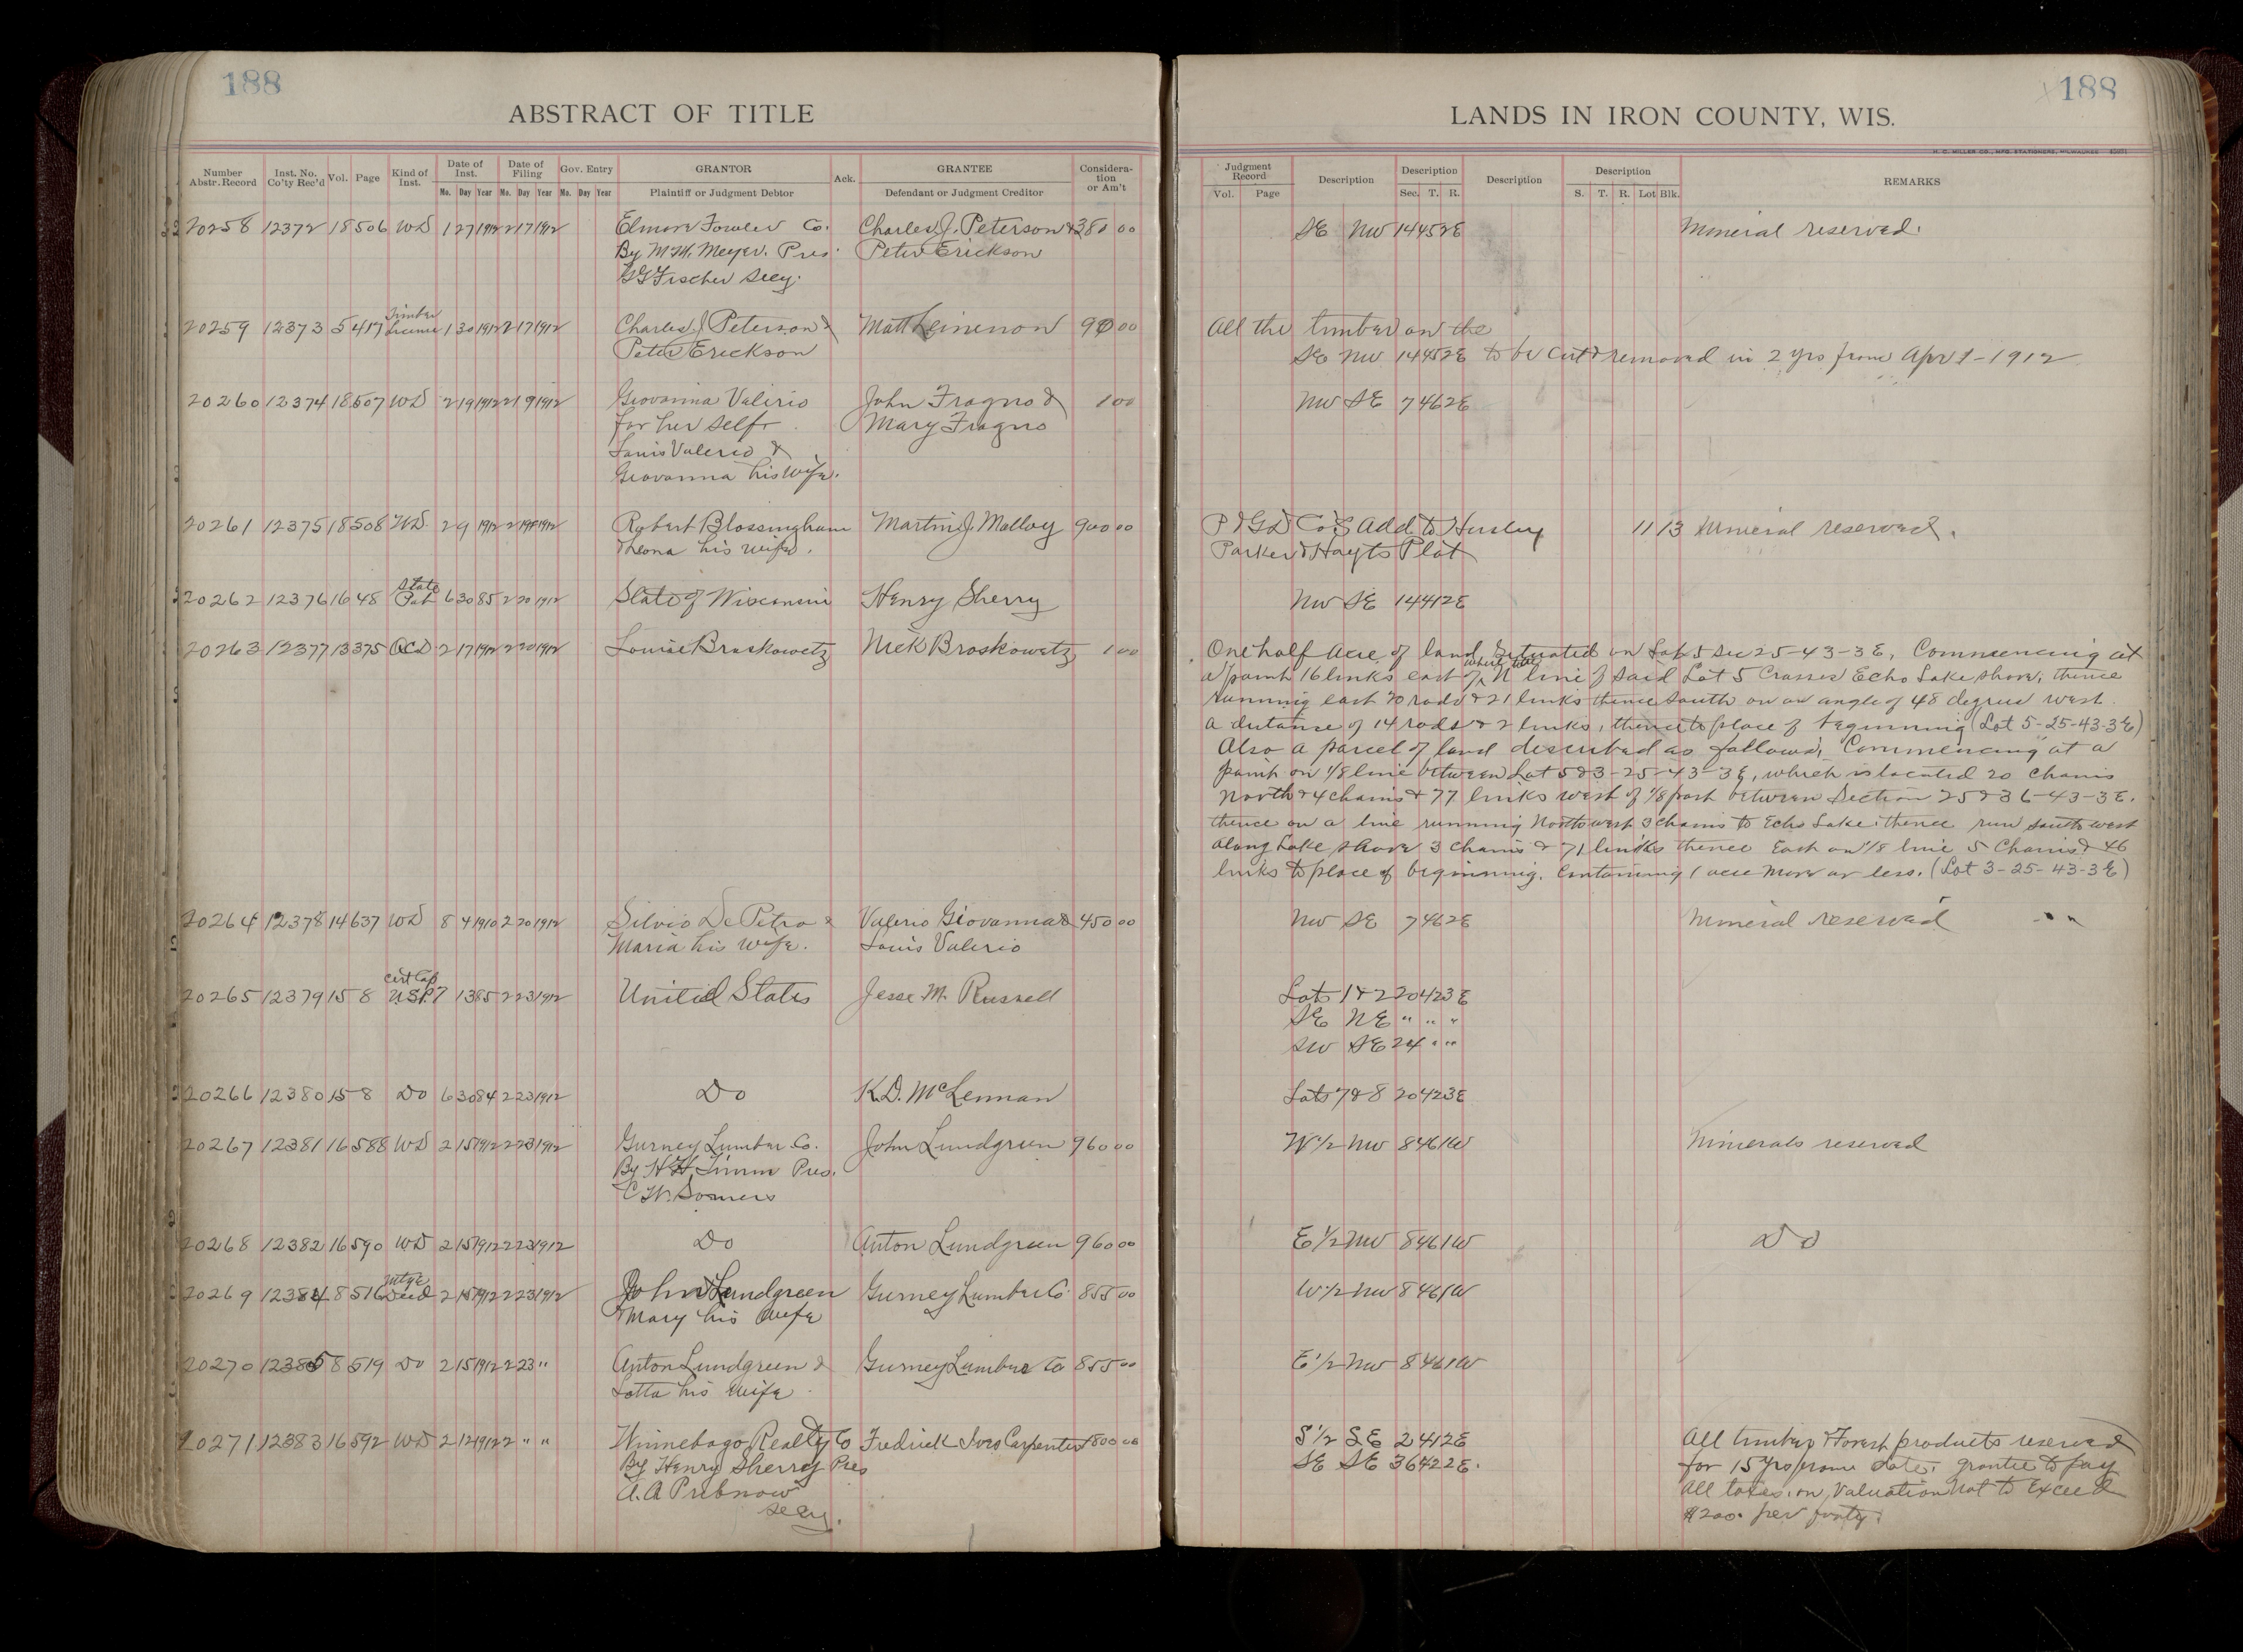 188
ABSTRACT OF TITLE
Number Abstr. Record Inst. No. Co'ty Rec'd Vol. Page Kind of Inst. Date of Inst. Date of Filing Gov. Entry GRANTOR Ack. GRANTEE Considera-tion or Am't
Mo. Day Year Mo. Day Year Mo. Day Year Plaintiff or Judgment Debtor Defendant or Judgment Creditor
20258 12372 18 506 WD 1 27 1912 2 17 1912 Elmore Fowler Co. Charles J. Peterson & 380 00
By M.H. Meyer. Pres. Peter Erickson
GG Fischer Secy.
20259 12373 5 417 Timber license 1 30 1912 2 17 1912 Charles J. Peterson & Matt 90 00
Peter Erickson
20260 12374 18 507 WD 2 19 1912 2 19 1912 Giovanina Valirio John Fragno & 1 00
for her self & Mary Fragno
Louis Valerio &
Giovanna his wife.
20261 12375 18 508 WD. 2 9 1912 2 19 1912 Robert Blossingham Martin J. Malloy 900 00
Theona his wife.
20262 12376 16 48 State Pat 6 30 85 2 20 1912 State of Wisconsin Henry Sherry
20263 12377 13 375 QCD 2 17 1912 2 20 1912 Louise Broskowetz Nick Broskowetz 1 00
20264 12378 14 637 WD 8 4 1910 2 20 1912 Silvio DePetro & Valerio Giovanna & 450 00
Maria his wife. Louis Valerio
20265 12379 15 8 Cert Cop U.S.P. 7 13 85 2 23 1912 United States Jesse M. Russell
20266 12380 15 8 Do 6 30 84 2 23 1912 Do K.D. McLennan
20267 12381 16 588 WD 2 15 1912 2 23 1912 Gurney Lumber Co. John Lundgreen 960 00
By H.H. Timm Pres.
C.W. Somers
20268 12382 16 590 WD 2 15 1912 2 23 1912 Do Anton Lundgreen 960 00
20269 12384 8 516 Mtge Deed 2 15 1912 2 23 1912 John Lundgreen Gurney Lumber Co. 855 00
Mary his wife
20270 12385 8 519 Do 2 15 1912 2 23 " Anton Lundgreen & Gurney Lumber Co 855 00
Lotta his wife
20271 12383 16 592 WD 2 12 1912 2 " " Winnebago Realty Co Fredrick Ives Carpenter 1800 00
By Henry Sherry Pres
A.A Prebnow
Secy.
188
LANDS IN IRON COUNTY, WIS.
H. C. MILLER CO., MFG. STATIONERS, MILWAUKEE
Judgment Record Description Description Description Description REMARKS
Vol. Page Sec. T. R. S. T. R. Lot Blk.
SE NW 14 45 2E Mineral reserved.
All the timber on the
SE NW 14 45 2E to be cut & removed in 2 yrs from Apr 1-1912
NW SE 7 46 2E
P & GD Co's Add to Hurley 11 13 Mineral reserved.
Parker & Hayts Plat
NW SE 14 41 2E
One half acre of land, situated on Lot 5 Sec 25-43-3E, Commencing at
a point 16 links east of where the N line of said Lot 5 Crosses Echo Lake shore, thence
running east 20 rods & 21 links thence south on an angle of 48 degrees west
a distance of 14 rods & 2 links, thence to place of beginning (Lot 5-25-43-3E)
Also a parcel of land described as follows, Commencing at a
point on 1/8 line between Lot 5 & 3-25-43-3E, which is located 20 chains
North & 4 chains & 77 links west of 1/8 post between Section 25 & 36-43-3E.
thence on a line running North west 3 chains to Echo Lake, thence run south west
along Lake shore 3 chains & 71 links thence East on 1/8 line 5 Chains & 46
links to place of beginning. Containing 1 acre more or less. (Lot 3-25-43-3E)
NW SE 7 46 2E Mineral reserved
Lots 1 & 2 20 42 3E
SE NE " " "
SW SE 24 " "
Lots 7 & 8 20 42 3E
W 1/2 NW 8 46 1W Minerals reserved
E 1/2 NW 8 46 1W Do
W 1/2 NW 8 46 1W
E 1/2 NW 8 46 1W
S 1/2 SE 2 41 2E All timber & Forest products reserved
SE SE 36 42 2E. for 15 yrs from date. grantee to pay
All taxes, on valuation not to exceed
$200. per forty.